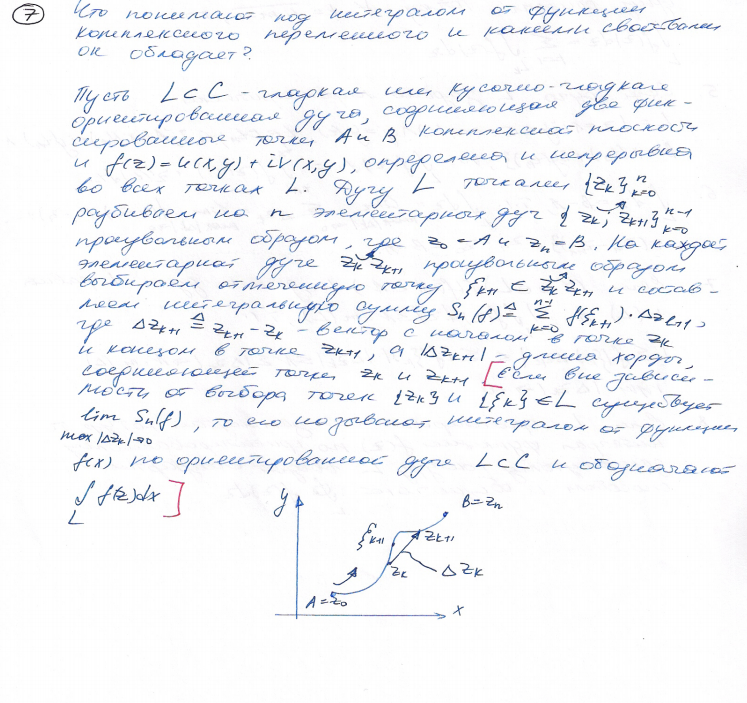 7 Что понимают под интегралом от функции
комплексного переменного и какими свойствами
он обладает?
Пусть L⊂C - гладкая или кусочно-гладкая
ориентированная дуга, соединяющая две фик-
сированные точки A и B комплексной плоскости
и f(z)=u(x,y)+iV(x,y), определена и непрерывна
во всех точках L. Дугу L точками {z_k}_{k=0}^{n}
разбиваем на n элементарных дуг {z_k, z_{k+1}}_{k=0}^{n-1}
произвольным образом, где z_0=A и z_n=B. На каждой
элементарной дуге z_k z_{k+1} произвольным образом
выбираем отмеченную точку ξ_{k+1} ∈ z_k z_{k+1} и состав-
ляем интегральную сумму S_n(f) ≜ Σ_{k=0}^{n-1} f(ξ_{k+1})·Δz_{k+1},
где Δz_{k+1} ≜ z_{k+1} - z_k - вектор с началом в точке z_k
и концом в точке z_{k+1}, а |Δz_{k+1}| - длина хорды,
соединяющей точки z_k и z_{k+1} [если вне зависи-
мости от выбора точек {z_k} и {ξ_k} ∈ L существует
lim S_n(f), то его называют интегралом от функции
max|Δz_k|→0
f(x) по ориентированной дуге L⊂C и обозначают
∫ f(z)dx ]
L
y
B=z_n
ξ_{k+1}
z_{k+1}
z_k
Δz_k
A=z_0
x